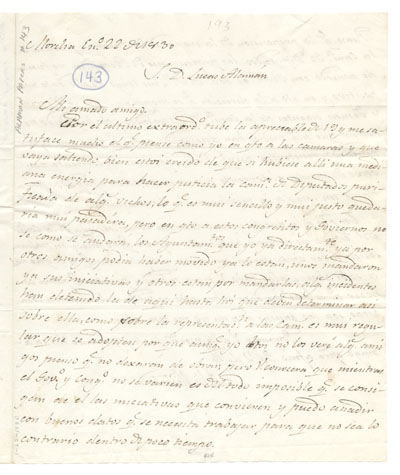 193
Morelia En.º 22 de 1830
143
S. D. Lucas Alaman
Mi amado amigo.
Por el ultimo extraord.º tube la apreciable de 19 y me sa-
tisface mucho q.e piense como yo en q.to a las camaras y que
vaya saliendo: bien estoi creido de que si hubiese alli una medi-
ana energia para hacer justicia la cam.ª de Diputados puri-
ficada de alg.s vichos, lo q.e es mui sencillo y mui justo queda-
ria mui pasadera, pero en q.to a estos congresitos y Goviernos no
se como se cuidaran, los Ayuntam.tos que yo directam.te ya por
otros amigos podia haber movido ya lo estan, unos mandaron
ya sus iniciativas y otros estan por mandarlas, alg.s incidentes
han detenido la de aqui hasta hoi que deben determinar asi
sobre ella, como sobre la representac.n a las Cam.s es mui regu-
lar que se adopten por que aunq.e yo no los vere alg.s ami-
gos pienso q.e no dexaran de obrar, pero V. conocera que mientras
el Gov.º y Cong.º no se varien es del todo imposible q.e se consi-
gan de el las iniciativas que convienen y puedo añadir
con buenos datos q.e se necesita trabajar para que no sea lo
contrario dentro de poco tiempo.